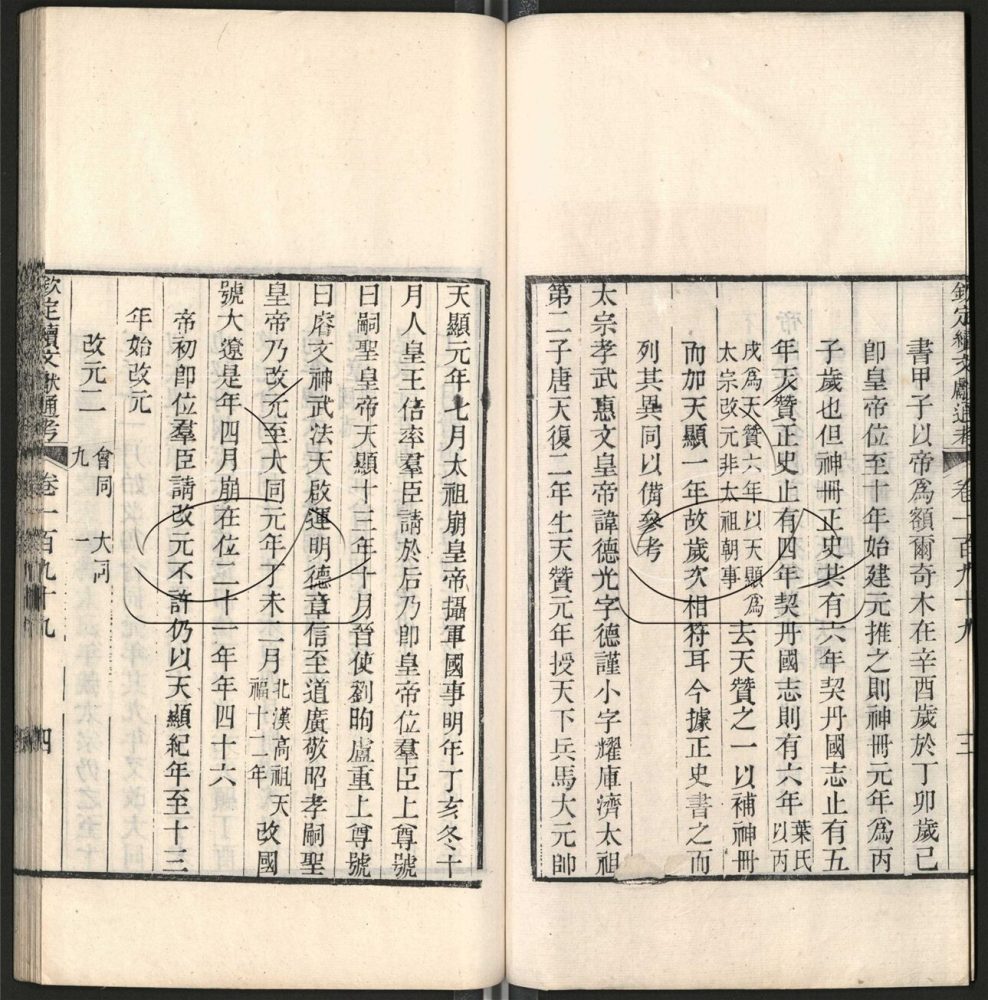 欽定續文獻通考 卷一百九十九 三
書甲子以帝爲額爾奇木在辛酉歲於丁卯歲已
卽皇帝位至十年始建元推之則神冊元年爲丙
子歲也但神冊正史共有六年契丹國志止有五
年天贊正史止有四年契丹國志則有六年葉氏以丙
戌爲天贊六年以天顯爲太宗改元非太祖朝事去天贊之一以補神冊
而加天顯一年故歲次相符耳今據正史書之而
列其異同以備參考
太宗孝武惠文皇帝諱德光字德謹小字耀庫濟太祖
第二子唐天復二年生天贊元年授天下兵馬大元帥
天顯元年七月太祖崩皇帝攝軍國事明年丁亥冬十
月人皇王倍率羣臣請於后乃卽皇帝位羣臣上尊號
曰嗣聖皇帝天顯十三年十月晉使劉昫盧重上尊號
曰睿文神武法天啟運明德章信至道廣敬昭孝嗣聖
皇帝乃改元至大同元年丁未二月北漢高祖天福十二年改國
號大遼是年四月崩在位二十一年年四十六
帝初卽位羣臣請改元不許仍以天顯紀年至十三
年始改元
改元二 會同九 大同一
欽定續文獻通考 卷一百九十九 四